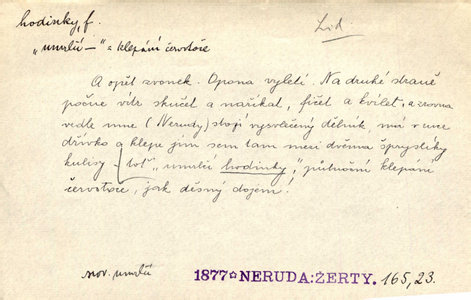 hodinky, f.
Lid.
„umrlčí —" = klepání červotoče
A opět zvonek. Opona vyletí. Na druhé straně
počne vítr skučet a naříkat, fičet a kvílet, a zrovna
vedle mne (Nerudy) stojí vysvlečený dělník, má v ruce
dřívko a klepe jím sem tam mezi dvěma špryslíky
kulisy – toť „umrlčí hodinky", půlnoční klepání
červotoče, jak děsný dojem!
srov. umrlčí
1877 NERUDA: ŽERTY. 165, 23.